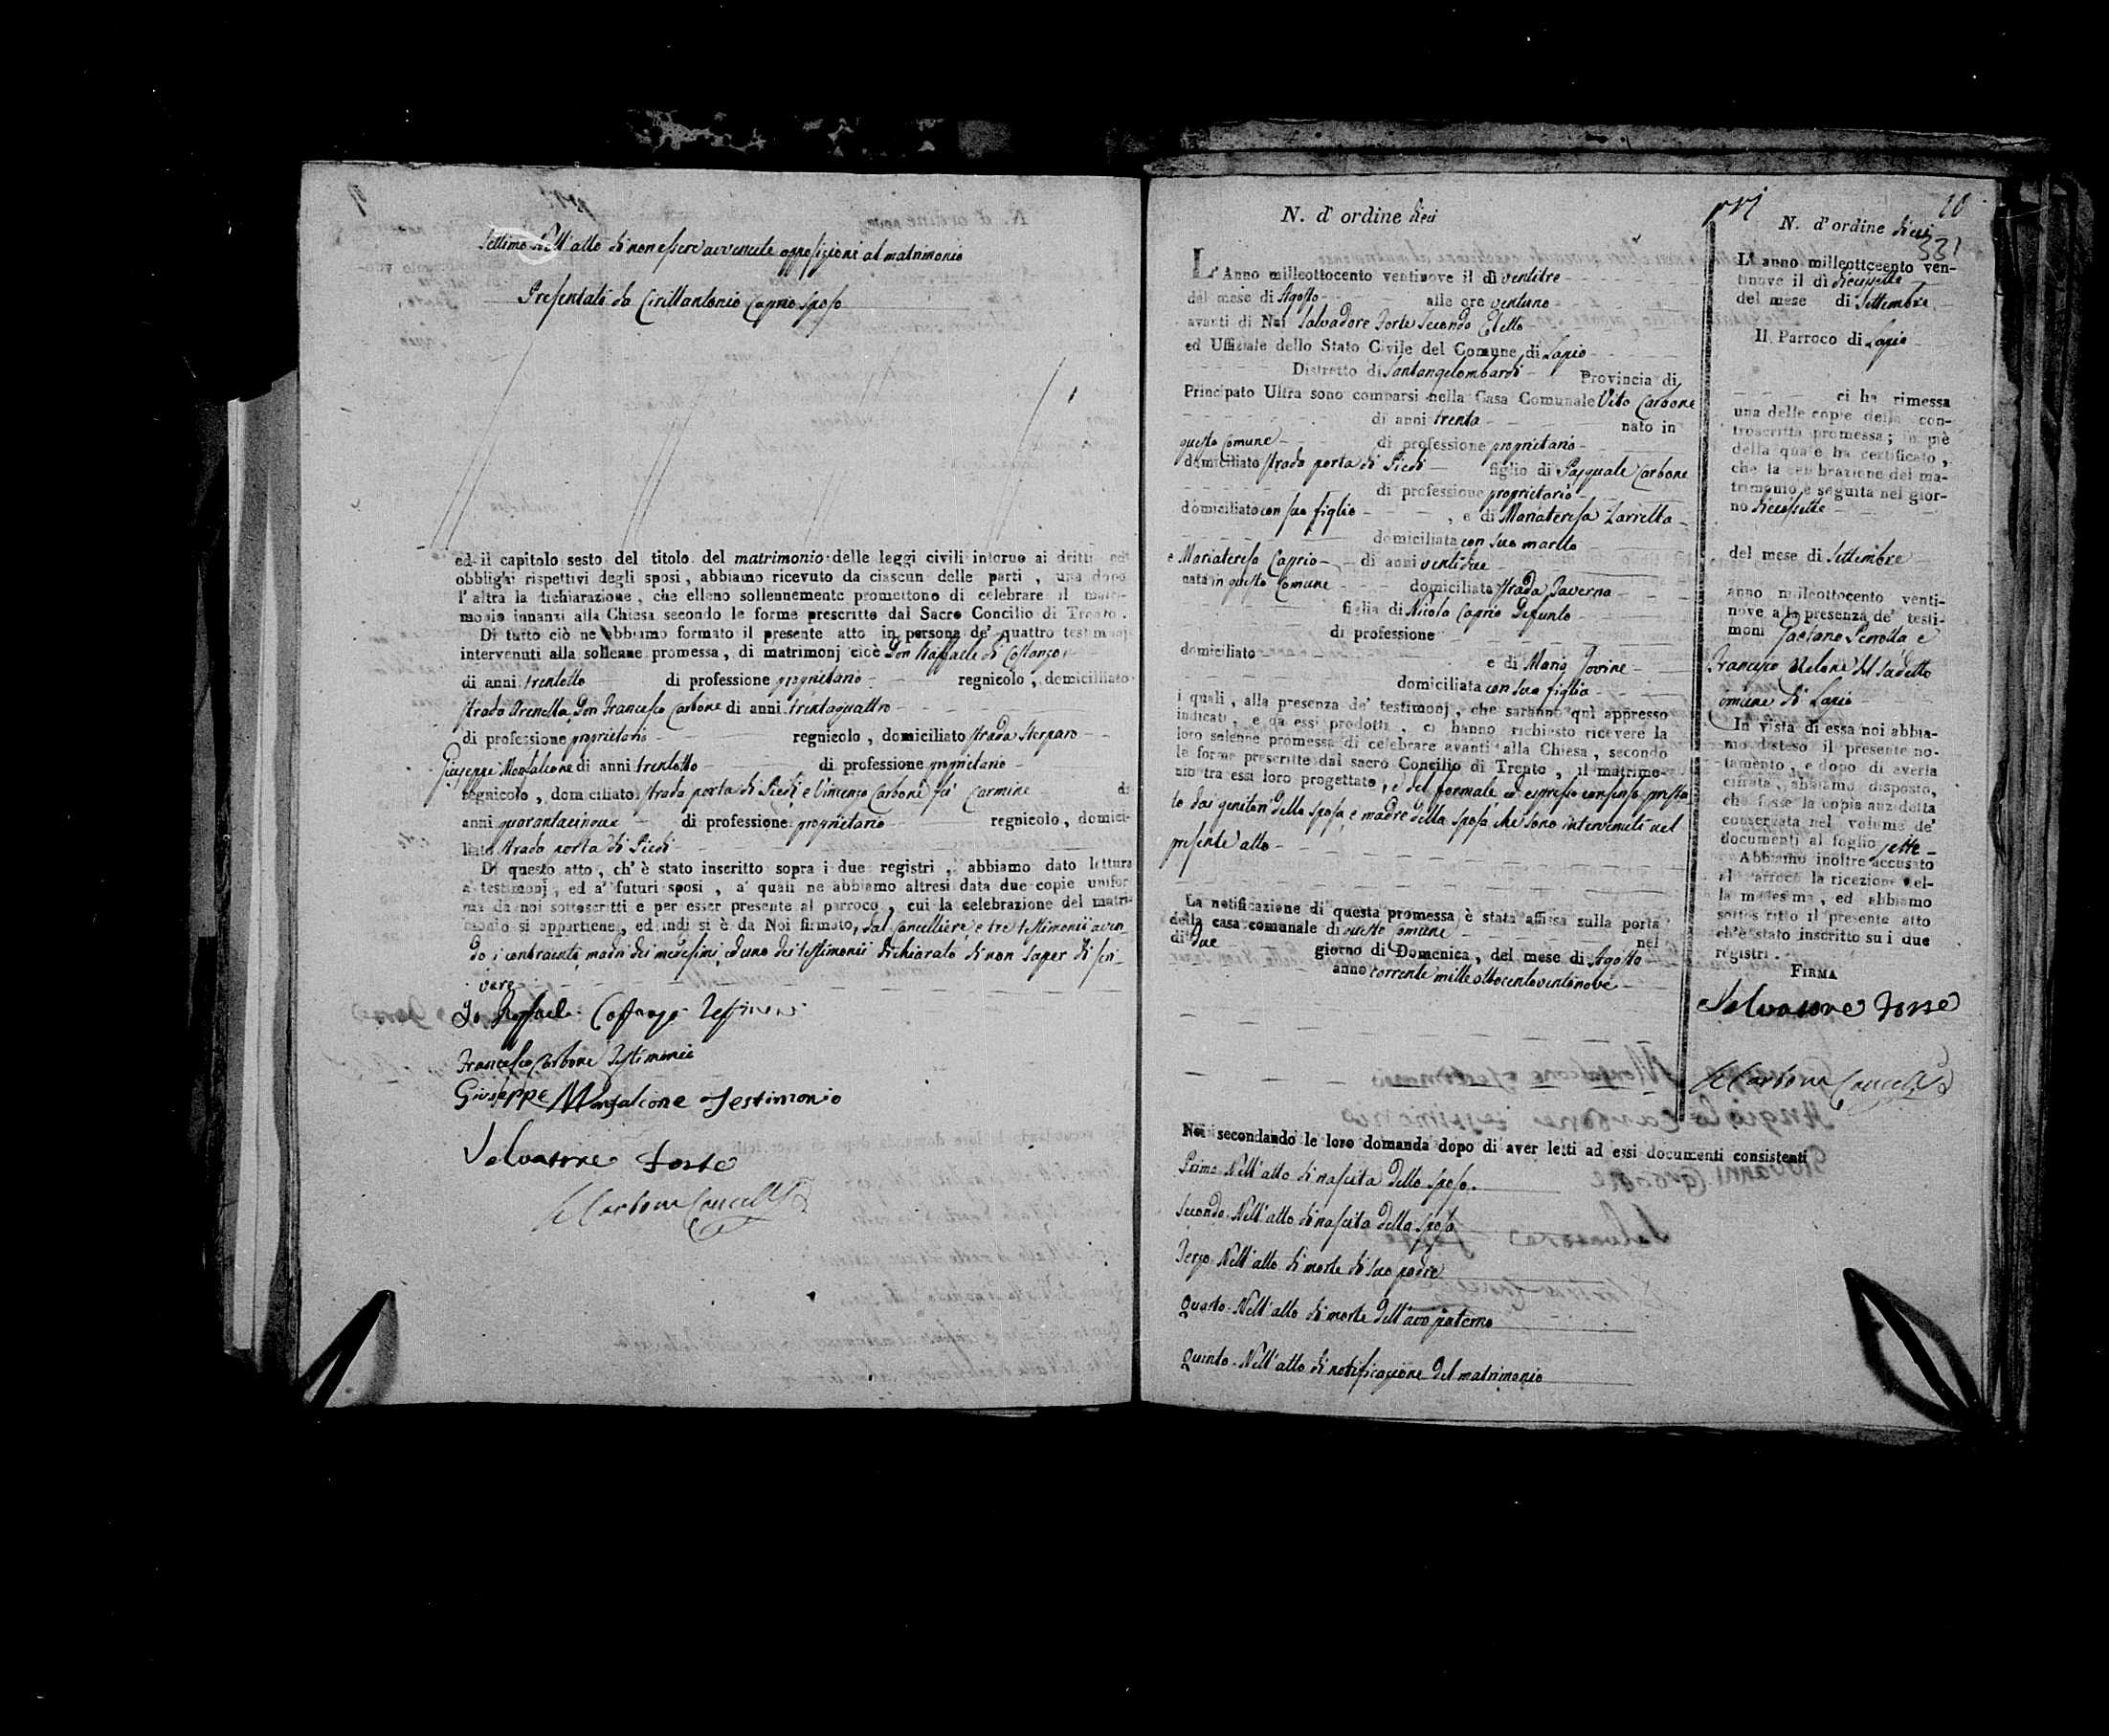 Settimo Nell'atto di non essere avvenute opposizioni al matrimonio
Presentati da Cirillantonio Caprio sposo
ed il capitolo sesto del titolo del matrimonio delle leggi civili intorno ai dritti ed
obblighi rispettivi degli sposi, abbiamo ricevuto da ciascun delle parti, una dopo
l'altra la dichiarazione, che elleno sollennemente promettono di celebrare il matri-
monio innanzi alla Chiesa secondo le forme prescritte dal Sacro Concilio di Trento.
Di tutto ciò ne abbiamo formato il presente atto in persona de' quattro testimonj
intervenuti alla sollenne promessa, di matrimonj cioè Don Raffaele di Costanzo
di anni trentotto di professione proprietario regnicolo, domicilliato
strada Arenella, Don Francesco Carbone di anni trentaquattro
di professione proprietario regnicolo, domiciliato strada Sterparo
Giuseppe Monfalcone di anni trentotto di professione proprietario
regnicolo, domiciliato strada porta di Piedi, e Vincenzo Carbone fu Carmine di
anni quarantacinque di professione proprietario regnicolo, domici-
liato strada porta di Piedi
Di questo atto, ch'è stato inscritto sopra i due registri, abbiamo dato lettura
a' testimonj, ed a' futuri sposi, a' quali ne abbiamo altresi data due copie unifor
ma da noi sottoscritti e per esser presente al parroco, cui la celebrazione del matri-
monio si appartiene, ed indi si è da Noi firmato, dal Cancelliere e tre testimonii aven-
do i contraenti, madri dei medesimi, ed uno dei testimonii dichiarato di non saper di scri-
vere
Raffaele Costanzo Testimonio
Francesco Carbone Testimonio
Giuseppe Monfalcone Testimonio
Salvatore Forte
Carbone Cancell
N. d' ordine dieci
L'Anno milleottocento ventinove il dì ventitre
del mese di Agosto alle ore ventuno
avanti di Noi Salvadore Forte Secondo Eletto
ed Uffiziale dello Stato Civile del Comune di Lapio
Distretto di Santangelombardi Provincia di
Principato Ultra sono comparsi nella Casa Comunale Vito Carbone
di anni trenta nato in
questo Comune di professione proprietario
domiciliato strada porta di Piedi figlio di Pasquale Carbone
di professione proprietario
domiciliato con suo figlio, e di Mariateresa Zarrella
domiciliata con suo marito
e Mariateresa Caprio di anni ventidue
nata in questo Comune domiciliata strada Taverna
figlia di Nicola Caprio Defunto
di professione
domiciliato e di Maria Jovine
domiciliata con sua figlia
i quali, alla presenza de' testimonj, che saranno quì appresso
indicati, e da essi prodotti, ci hanno richiesto ricevere la
loro solenne promessa di celebrare avanti alla Chiesa, secondo
le forme prescritte dal sacro Concilio di Trento, il matrimo-
nio tra essi loro progettato, e del formale ed espresso consenso presta
to dai genitori dello sposo, e madre della sposa che sono intervenuti nel
presente atto
La notificazione di questa promessa è stata affissa sulla porta
della casa comunale di questo Comune nel
di due giorno di Domenica, del mese di Agosto
anno corrente mille ottocentoventinove
Noi secondando le loro domanda dopo di aver letti ad essi documenti consistenti
Primo Nell'atto di nascita dello sposo.
Secondo Nell'atto di nascita della sposa
Terzo Nell'atto di morte di suo padre
Quarto Nell'atto di morte dell'avo paterno
Quinto Nell'atto di notificazione del matrimonio
10
N. d' ordine dieci
331
L' anno milleottocento ven-
tinove il dì diecisette
del mese di Settembre
Il Parroco di Lapio
ci ha rimessa
una delle copie della con-
troscritta promessa; in piè
della quale ha certificato,
che la celebrazione del ma-
trimonio è seguita nel gior-
no diecisette
del mese di Settembre
anno milleottocento venti-
nove alla presenza de' testi-
moni Gaetano Perrotta e
Francesco del sudetto
comune di Lapio
In vista di essa noi abbia-
mo disteso il presente no-
tamento, e dopo di averla
cifrata, abbiamo disposto,
che fosse la copia anzidetta
conservata nel volume de'
documenti al foglio sette
Abbiamo inoltre accusato
al Parroco la ricezione del-
la medesima, ed abbiamo
sottoscritto il presente atto
ch'è stato inscritto su i due
registri.
FIRMA
Salvatore Forte
Carbone Cancell